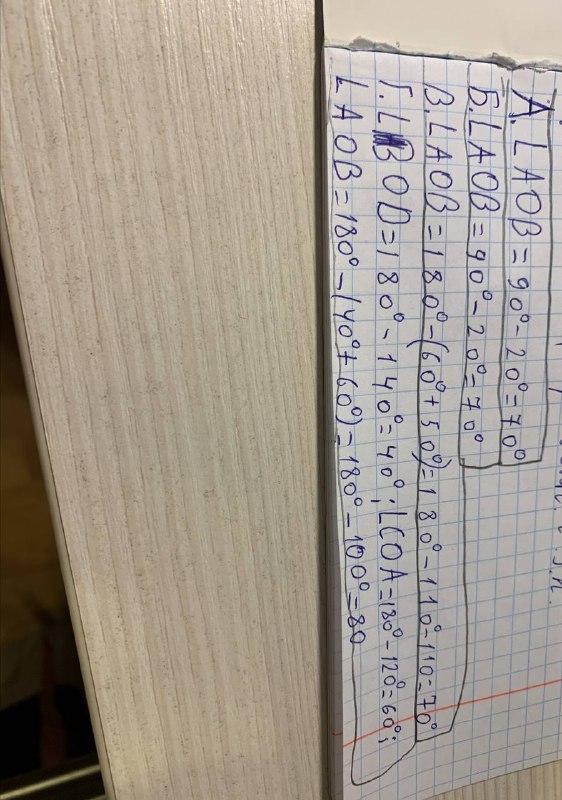 А. ∠AOB = 90° - 20° = 70°
Б. ∠AOB = 90° - 20° = 70°
В. ∠AOB = 180° - (60° + 50°) = 180° - 110° - 110 = 70°
Г. ∠BOD = 180° - 140° = 40°; ∠COA = 180° - 120° = 60°;
∠AOB = 180° - (40° + 60°) = 180° - 100° = 80